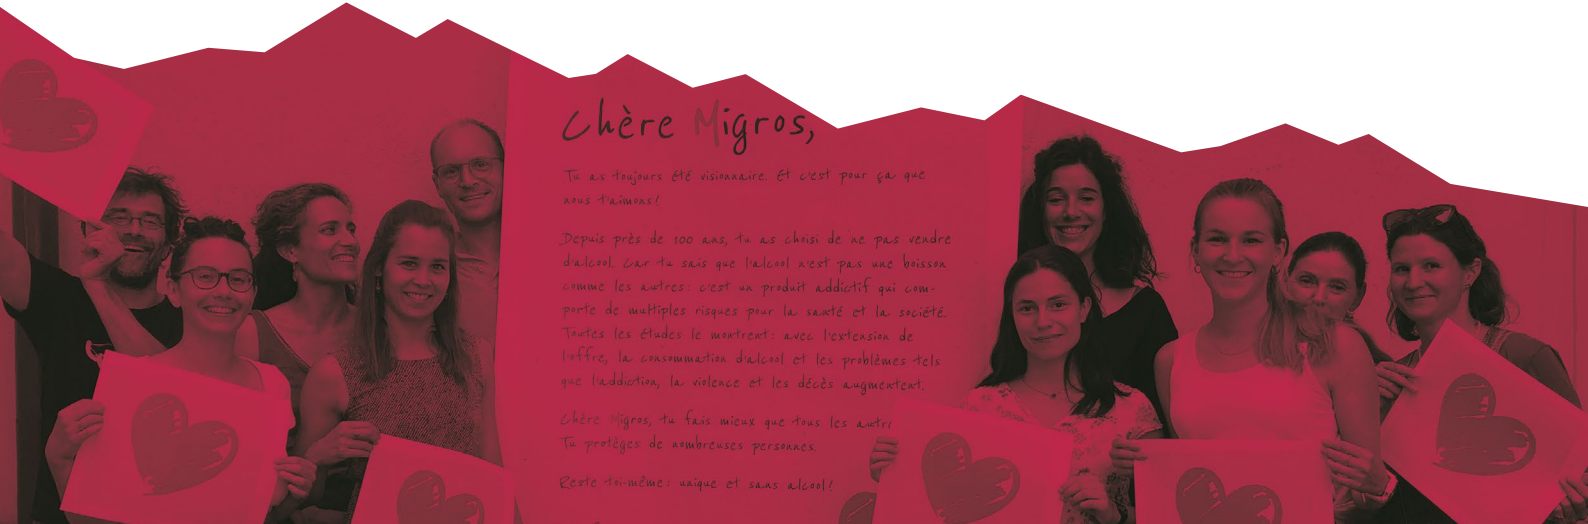 Chère Migros,
Tu as toujours été visionnaire. Et c'est pour ça que
nous t'aimons!
Depuis près de 100 ans, tu as choisi de ne pas vendre
d'alcool. Car tu sais que l'alcool n'est pas une boisson
comme les autres: c'est un produit addictif qui com-
porte de multiples risques pour la santé et la société.
Toutes les études le montrent: avec l'extension de
l'offre, la consommation d'alcool et les problèmes tels
que l'addiction, la violence et les décès augmentent.
Chère Migros, tu fais mieux que tous les autr
Tu protèges de nombreuses personnes.
Reste toi-même: unique et sans alcool!